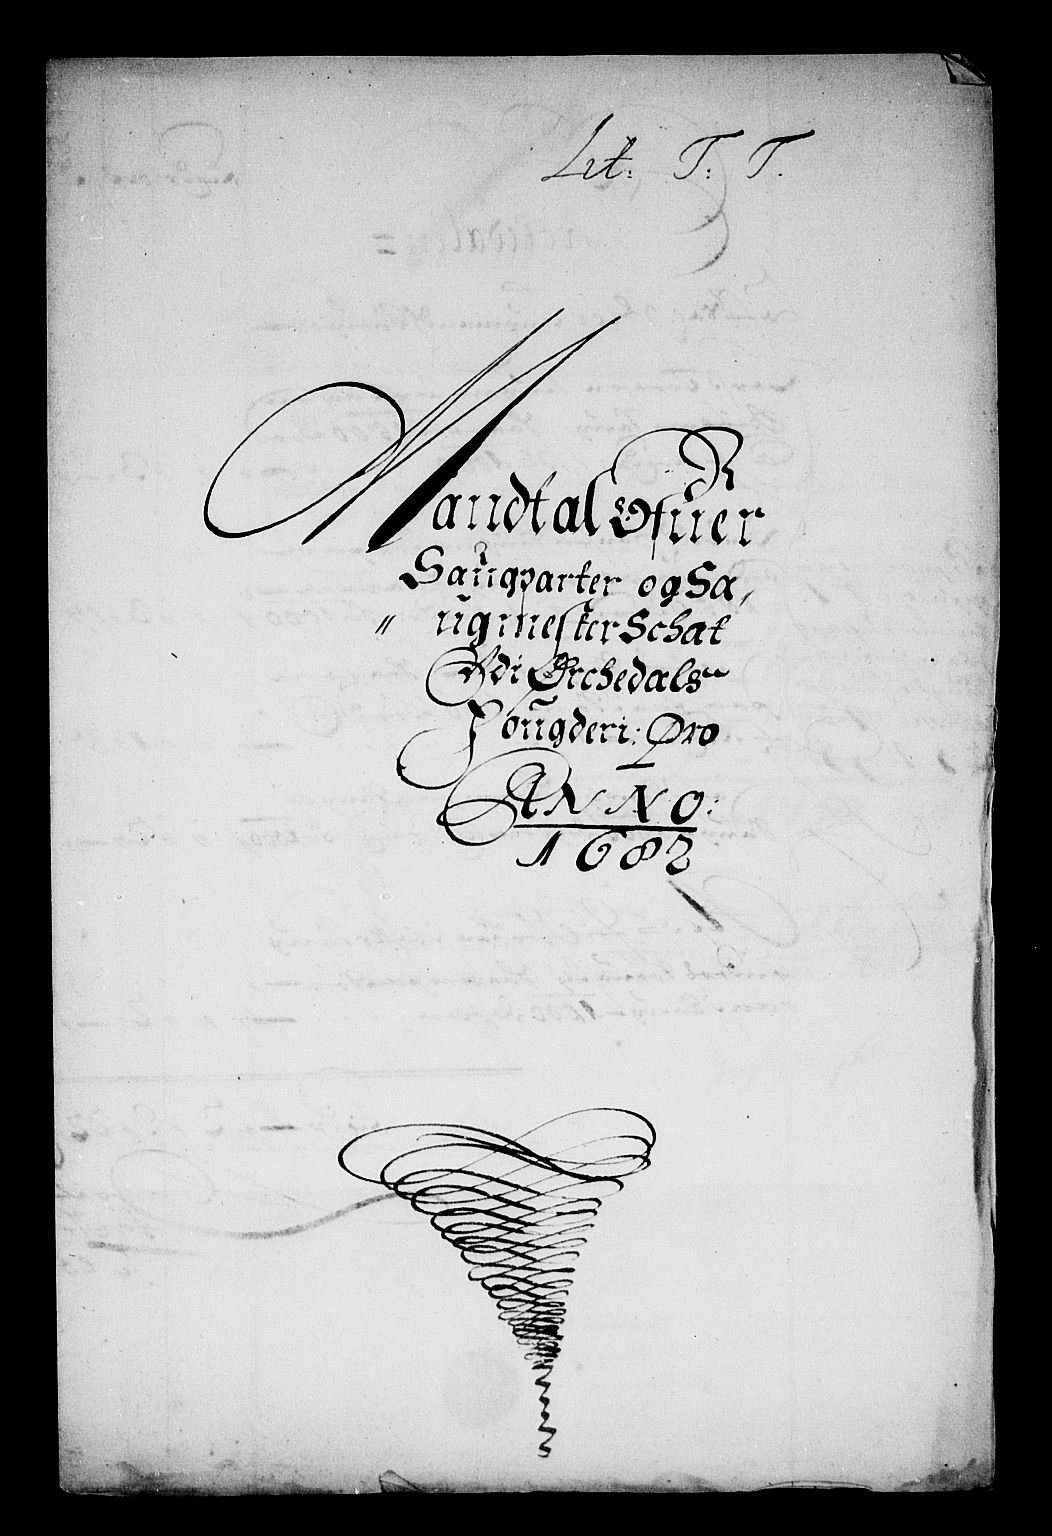 Lit: T: T.
Mandtal Ofuer
Saugparter og Sa,
„ ugmester Schat
Udi Ørchedals
Fougderi: Pro
ANNO:
1682